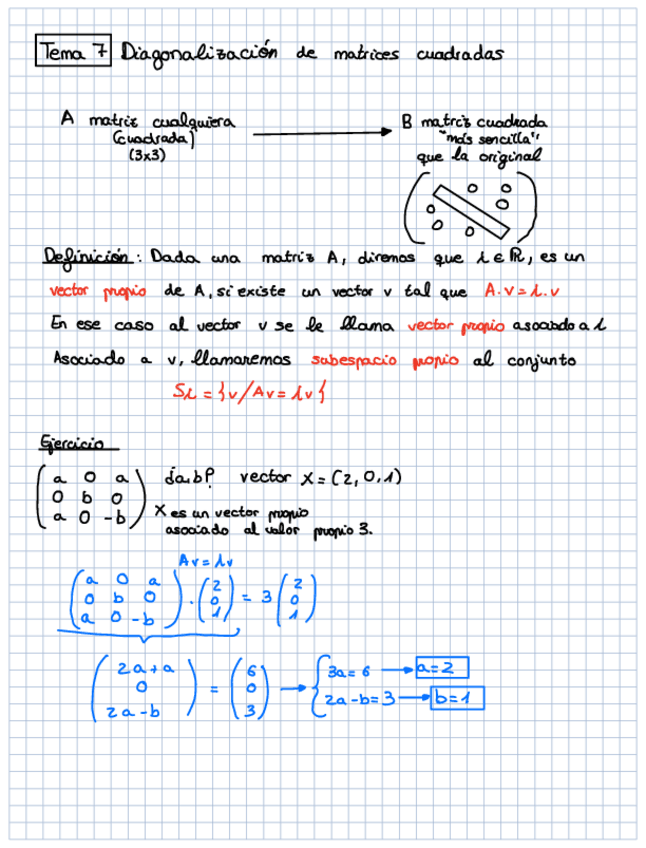 Tema 7 Diagonalización de matrices cuadradas
A matriz cualquiera
(cuadrada)
(3x3)
B matriz cuadrada
"más sencilla"
que la original
0 0
0 0
0 0
Definición: Dada una matriz A, diremos que λ ∈ ℝ, es un
vector propio de A, si existe un vector v tal que A.v = λ.v
En ese caso al vector v se le llama vector propio asociado a λ
Asociado a v, llamaremos subespacio propio al conjunto
Sλ = {v/Av = λv}
Ejercicio
( a 0 a )
( 0 b 0 )
( a 0 -b )
¿a,b? vector X = (2,0,1)
X es un vector propio
asociado al valor propio 3.
Av = λv
( a 0 a ) ( 2 ) ( 2 )
( 0 b 0 ) . ( 0 ) = 3 ( 0 )
( a 0 -b ) ( 1 ) ( 1 )
( 2a+a ) ( 6 ) { 3a = 6 → a = 2
( 0 ) = ( 0 ) →
( 2a-b ) ( 3 ) { 2a-b = 3 → b = 1